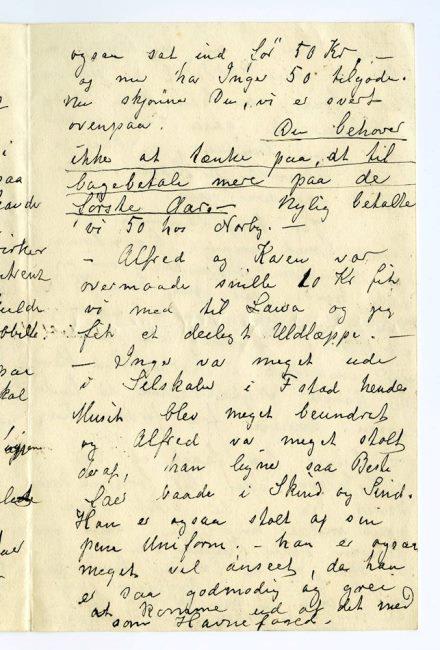 ogsaa sat ind for 50 Kr. —
og nu har Inger 50 tilgode.
Nu skjønner Du, vi er svært
ovenpaa. Du behøver
ikke at tænke paa, at til
bagebetale mere paa de
første Aar. — Nylig betalte
vi 50 hos Norby. —
— Alfred og Karen var
overmaade snille 10 Kr fik
vi med til Lawa og jeg
fik et deiligt Uldtæppe. —
— Inger va meget ude
i Selskaber i Fstad hendes
Musik blev meget beundret
og Alfred va meget stolt
deraf, han ligner saa Beste
Faer baade i Skind og Sind.
Han er ogsaa stolt af sin
pene Uniform. — han er ogsaa
meget vel anseet, da han
er saa godmodig og grei
at komme ud af det med
som Havnefoged.